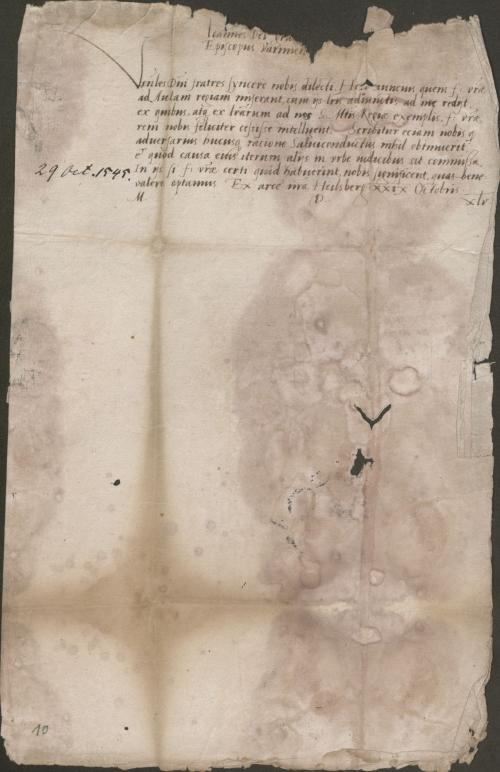 Ioannes Dei gra
Episcopus Varmien
fratres syncere nobis dilecti. nuncius quem f. vrae
ad Aulam regiam miserant, cum adiunctis ad nos redijt,
ex quibus, atq ex ad nos exemplis, f. vrae
rem nobis feliciter cessisse intelligent. Scribitur eciam nobis q
aduersarius hucusq racione Saluiconductus nihil obtinuerit
et quod causa eius iterum alijs in vrbe iudicibus sit commissa.
In si f. vrae certi quid habuerint, nobis significent, quas bene
valere optamus Ex arce nra Heilsberg XXIX Octobris
M D xlv
29 Oct. 1545.
10